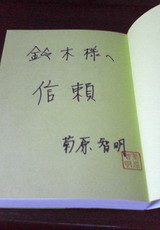 鈴木様へ
信頼
菊原智明